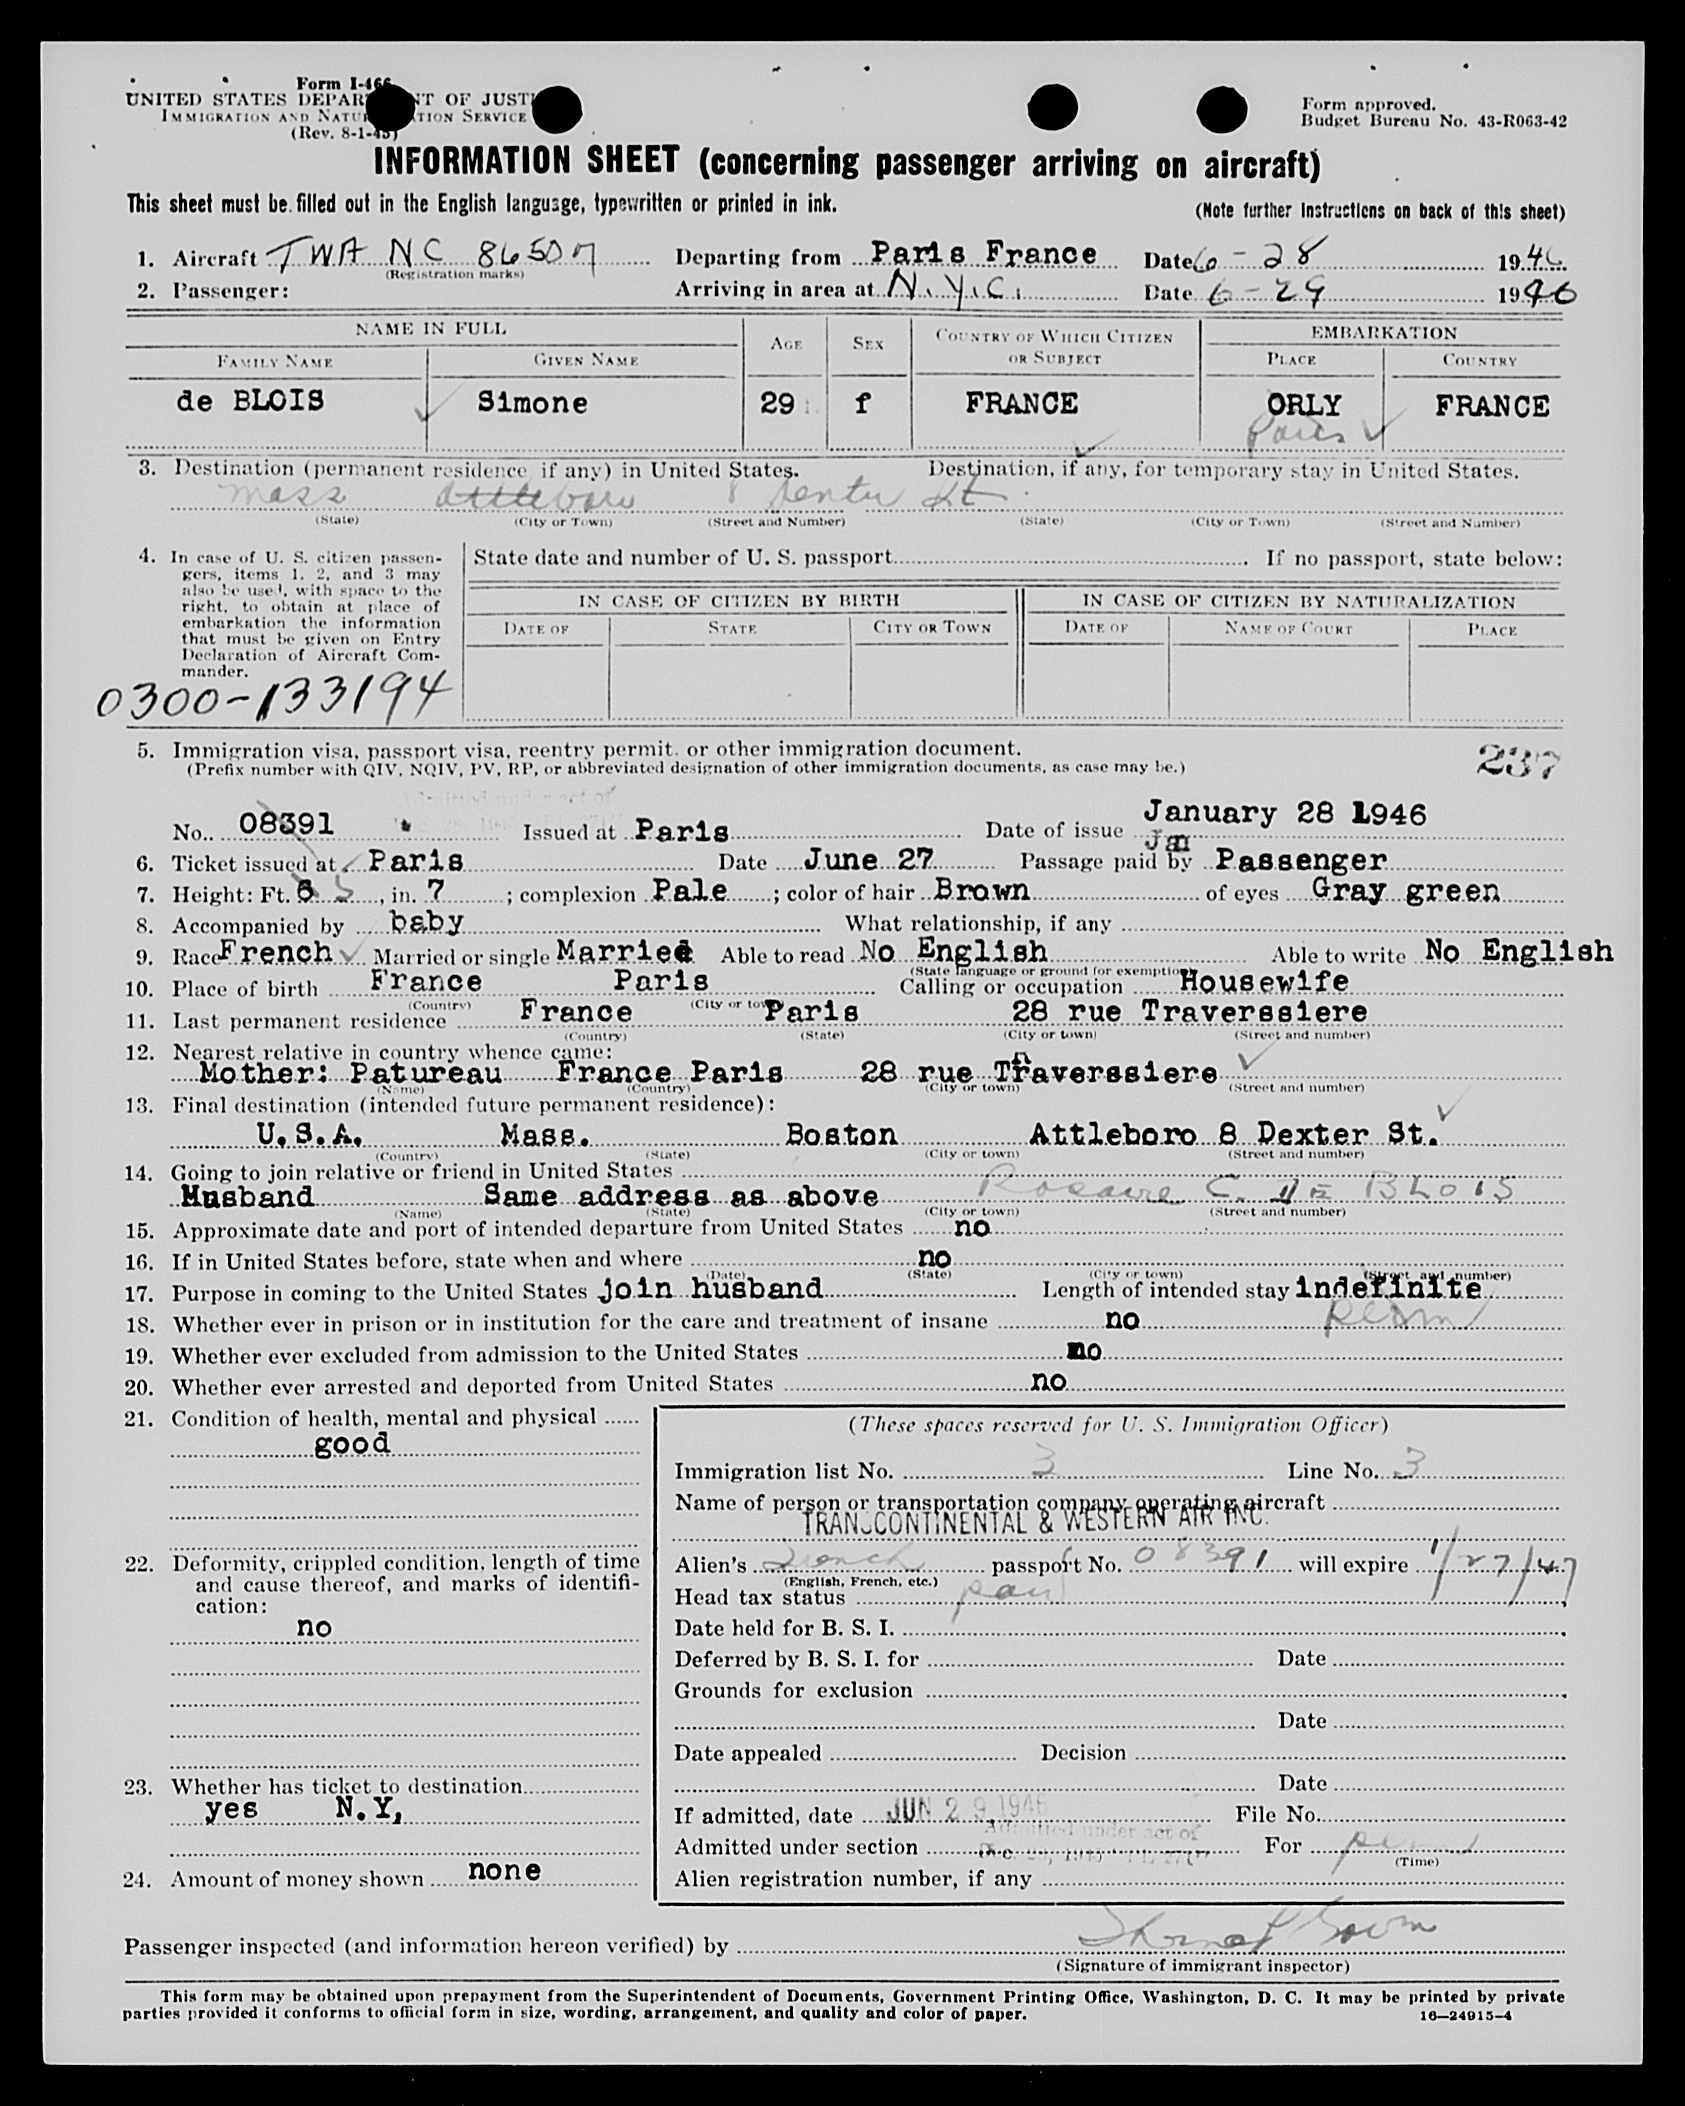 Form I-466
UNITED STATES DEPAR T OF JUST
IMMIGRATION AND NATUR TION SERVICE
(Rev. 8-1-45)
Form approved.
Budget Bureau No. 43-R063-42
INFORMATION SHEET (concerning passenger arriving on aircraft)
This sheet must be filled out in the English language, typewritten or printed in ink.
(Note further instructions on back of this sheet)
1. Aircraft TWA NC 86507 Departing from Paris France Date 6-28 1946
(Registration marks)
2. Passenger: Arriving in area at N.Y.C. Date 6-29 1946
NAME IN FULL AGE SEX COUNTRY OF WHICH CITIZEN OR SUBJECT EMBARKATION
FAMILY NAME GIVEN NAME PLACE COUNTRY
de BLOIS Simone 29 f FRANCE ORLY FRANCE
Paris
3. Destination (permanent residence if any) in United States. Destination, if any, for temporary stay in United States.
Mass Attleboro 8 Dexter St.
(State) (City or Town) (Street and Number) (State) (City or Town) (Street and Number)
4. In case of U. S. citizen passen-
gers, items 1, 2, and 3 may
also be used, with space to the
right, to obtain at place of
embarkation the information
that must be given on Entry
Declaration of Aircraft Com-
mander.
State date and number of U. S. passport If no passport, state below:
IN CASE OF CITIZEN BY BIRTH IN CASE OF CITIZEN BY NATURALIZATION
DATE OF STATE CITY OR TOWN DATE OF NAME OF COURT PLACE
0300-133194
5. Immigration visa, passport visa, reentry permit, or other immigration document.
(Prefix number with QIV, NQIV, PV, RP, or abbreviated designation of other immigration documents, as case may be.)
237
No. 08391 Issued at Paris Date of issue January 28 1946
Jan
6. Ticket issued at Paris Date June 27 Passage paid by Passenger
7. Height: Ft. 6 5, in. 7; complexion Pale; color of hair Brown of eyes Gray green
8. Accompanied by baby What relationship, if any
9. Race French Married or single Married Able to read No English Able to write No English
(State language or ground for exemption)
10. Place of birth France Paris Calling or occupation Housewife
(Country) (City or town)
11. Last permanent residence France Paris 28 rue Traverssiere
(Country) (State) (City or town) (Street and number)
12. Nearest relative in country whence came:
Mother: Patureau France Paris 28 rue Traverssiere
(Name) (Country) (City or town) (Street and number)
13. Final destination (intended future permanent residence):
U.S.A. Mass. Boston Attleboro 8 Dexter St.
(Country) (State) (City or town) (Street and number)
14. Going to join relative or friend in United States
Husband Same address as above Rosaire C. DE BLOIS
(Name) (State) (City or town) (Street and number)
15. Approximate date and port of intended departure from United States no
16. If in United States before, state when and where no
(Date) (State) (City or town) (Street and number)
17. Purpose in coming to the United States join husband Length of intended stay indefinite
perm
18. Whether ever in prison or in institution for the care and treatment of insane no
19. Whether ever excluded from admission to the United States no
20. Whether ever arrested and deported from United States no
21. Condition of health, mental and physical
good
22. Deformity, crippled condition, length of time
and cause thereof, and marks of identifi-
cation:
no
23. Whether has ticket to destination
yes N.Y,
24. Amount of money shown none
(These spaces reserved for U. S. Immigration Officer)
Immigration list No. 3 Line No. 3
Name of person or transportation company operating aircraft
TRANSCONTINENTAL & WESTERN AIR INC.
Alien's French passport No. 08391 will expire 1/27/47
(English, French, etc.)
Head tax status
Date held for B. S. I.
Deferred by B. S. I. for Date
Grounds for exclusion
Date
Date appealed Decision
Date
If admitted, date JUN 29 1946 File No.
Admitted under act of
Admitted under section Dec. 28, 1945 For perm
(Time)
Alien registration number, if any
Passenger inspected (and information hereon verified) by
(Signature of immigrant inspector)
This form may be obtained upon prepayment from the Superintendent of Documents, Government Printing Office, Washington, D. C. It may be printed by private
parties provided it conforms to official form in size, wording, arrangement, and quality and color of paper.
16—24915-4